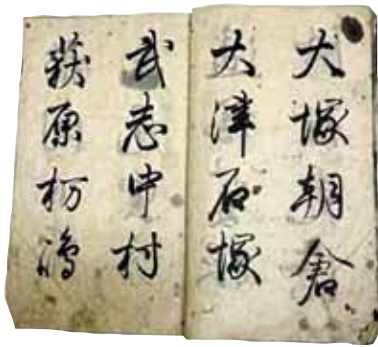 大塚朝倉
大津石塚
武志中村
荻原